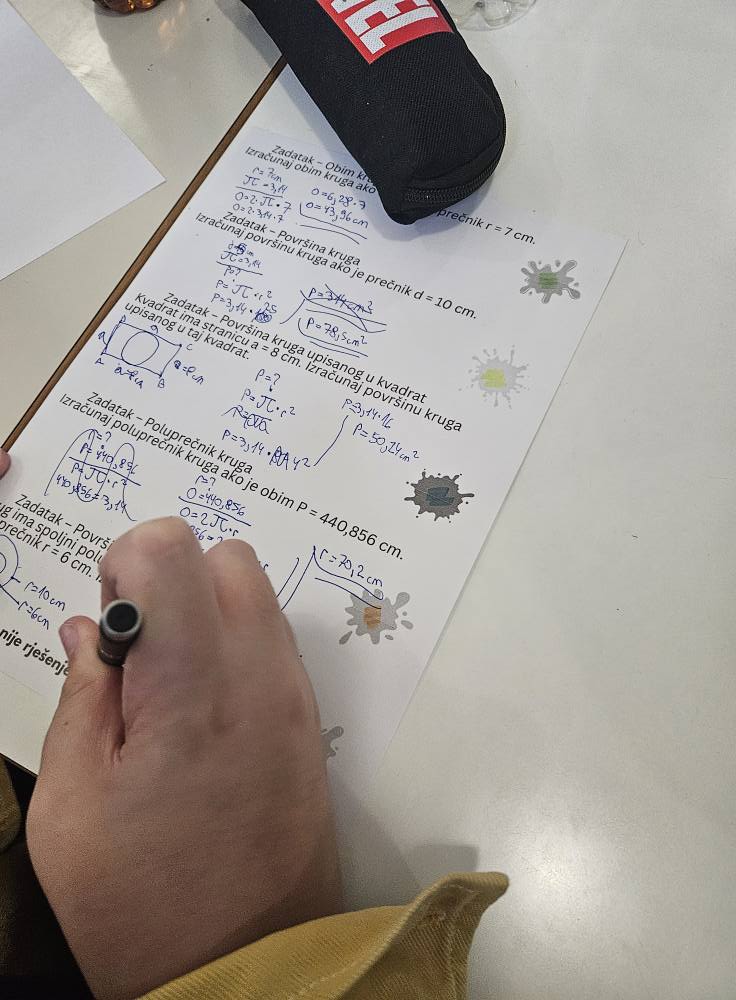 Zadatak – Obim
Izračunaj obim kruga ako
prečnik r = 7 cm.
r=7cm
π=3,14
O=2·π·7
O=2·3,14·7
O=6,28·7
O=43,96cm
Zadatak – Površina kruga
Izračunaj površinu kruga ako je prečnik d = 10 cm.
π=3,14
P=?
P=π·r²
P=3,14·25
P=314cm²
P=78,5cm²
Zadatak – Površina kruga upisanog u kvadrat
Kvadrat ima stranicu a = 8 cm. Izračunaj površinu kruga
upisanog u taj kvadrat.
D
C
A
B
P=?
P=π·r²
P=3,14·4²
P=3,14·16
P=50,24cm²
Zadatak – Poluprečnik kruga
Izračunaj poluprečnik kruga ako je obim P = 440,856 cm.
r=?
P=440,856
P=π·r²
440,856=3,14
r=?
O=440,856
O=2π·r
r=70,2cm
Zadatak – Površ
ug ima spoljni polu
prečnik r = 6 cm.
r=10cm
r=6cm
nije rješenje